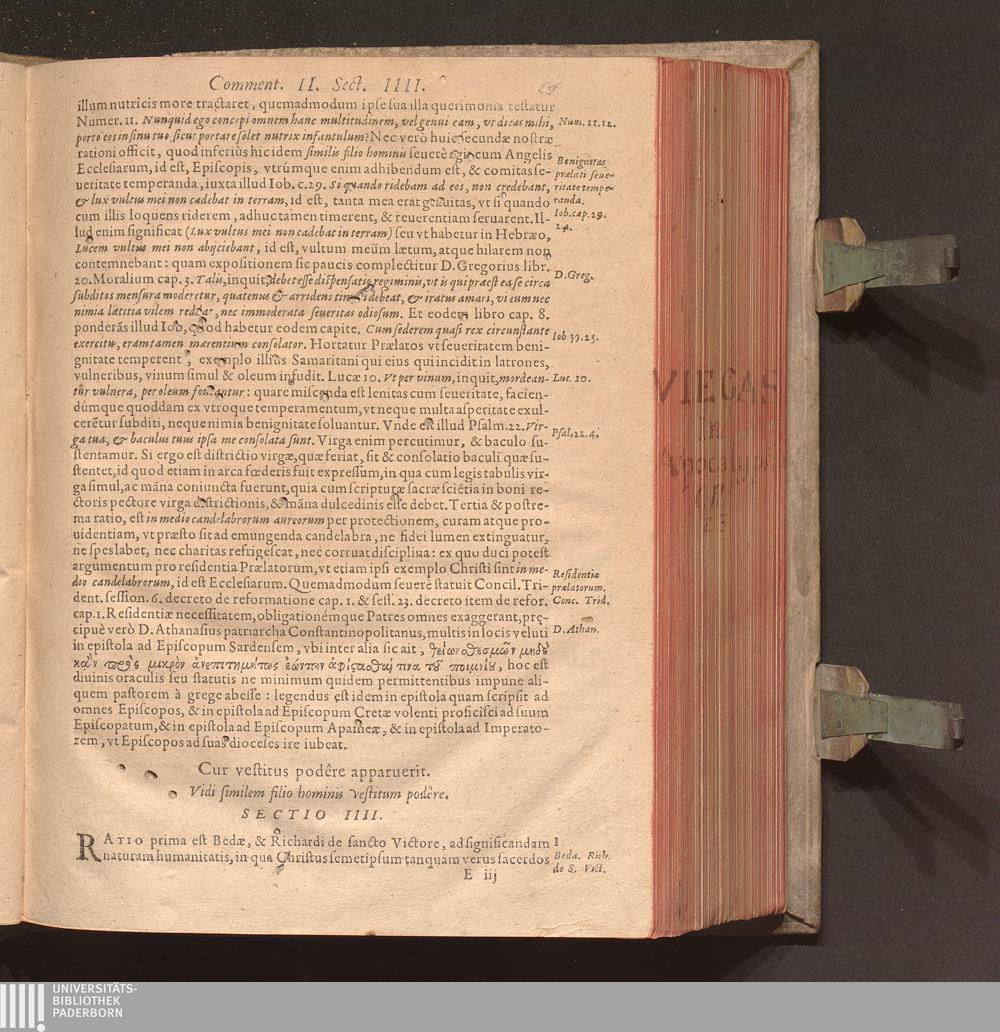 Comment. II. Sect. IIII.
illum nutricis more tractaret, quemadmodum ipse sua illa querimonia testatur
Numer. 11. Nunquid ego concepi omnem hanc multitudinem, vel genui eam, vt dicas mihi,
porto eos in sinu tuo sicut portare solet nutrix infantulum? Nec verò huic secundæ nostræ
rationi officit, quod inferiùs hic idem similis filio hominis seuerè agit cum Angelis
Ecclesiarum, id est, Episcopis, vtrúmque enim adhibendum est, & comitas se-
ueritate temperanda, iuxta illud Iob. c. 29. Si quando ridebam ad eos, non credebant,
& lux vultus mei non cadebat in terram, id est, tanta mea erat grauitas, vt si quando
cum illis loquens riderem, adhuc tamen timerent, & reuerentiam seruarent. Il-
lud enim significat (Lux vultus mei non cadebat in terram) seu vt habetur in Hebræo,
Lucem vultus mei non abijciebant, id est, vultum meum lætum, atque hilarem non
contemnebant: quam expositionem sic paucis complectitur D. Gregorius libr.
20. Moralium cap. 3. Talis, inquit, debet esse dispensatio regiminis, vt is qui præest ea se circa
subditos mensura moderetur, quatenus & arridens timeri debeat, & iratus amari, vt eum nec
nimia lætitia vilem reddat, nec immoderata seueritas odiosum. Et eodem libro cap. 8.
ponderãs illud Iob, quod habetur eodem capite. Cum sederem quasi rex circunstante
exercitu, eram tamen mærentium consolator. Hortatur Prælatos vt seueritatem beni-
gnitate temperent, exemplo illius Samaritani qui eius qui incidit in latrones,
vulneribus, vinum simul & oleum infudit. Lucæ 10. Vt per vinum, inquit, mordean-
tur vulnera, per oleum foueantur: quare miscenda est lenitas cum seueritate, facien-
dúmque quoddam ex vtroque temperamentum, vt neque multa asperitate exul-
cerẽtur subditi, neque nimia benignitate soluantur. Vnde est illud Psalm. 22. Vir-
ga tua, & baculus tuus ipsa me consolata sunt. Virga enim percutimur, & baculo su-
stentamur. Si ergo est districtio virgæ, quæ feriat, sit & consolatio baculi quæ su-
stentet, id quod etiam in arca fœderis fuit expressum, in qua cum legis tabulis vir-
ga simul, ac mãna coniuncta fuerunt, quia cum scripturæ sacræ sciẽtia in boni re-
ctoris pectore virga districtionis, & mãna dulcedinis esse debet. Tertia & postre-
ma ratio, est in medio candelabrorum aureorum per protectionem, curam atque pro-
uidentiam, vt præsto sit ad emungenda candelabra, ne fidei lumen extinguatur,
ne spes labet, nec charitas refrigescat, nec corruat disciplina: ex quo duci potest
argumentum pro residentia Prælatorum, vt etiam ipsi exemplo Christi sint in me-
dio candelabrorum, id est Ecclesiarum. Quemadmodum seuerè statuit Concil. Tri-
dent. session. 6. decreto de reformatione cap. 1. & sess. 23. decreto item de refor.
cap. 1. Residentiæ necessitatem, obligationémque Patres omnes exaggerant, præ-
cipuè verò D. Athanasius patriarcha Constantinopolitanus, multis in locis veluti
in epistola ad Episcopum Sardensem, vbi inter alia sic ait, θείων θεσμῶν μηδὲ
πρὸς μικρὸν ἀνεπιτημήτως ἀφίσταθαι τινα τοῦ ποιμνίου, hoc est
diuinis oraculis seu statutis ne minimum quidem permittentibus impune ali-
quem pastorem à grege abesse: legendus est idem in epistola quam scripsit ad
omnes Episcopos, & in epistola ad Episcopum Cretæ volenti proficisci ad suum
Episcopatum, & in epistola ad Episcopum Apameæ, & in epistola ad Imperato-
rem, vt Episcopos ad suas dioceses ire iubeat.
Cur vestitus podêre apparuerit.
Vidi similem filio hominis vestitum podêre.
SECTIO IIII.
RATIO prima est Bedæ, & Richardi de sancto Victore, ad significandam
naturam humanitatis, in qua Christus semetipsum tanquam verus sacerdos
E iij
Num. 11. 12.
Benignitas
prælati seue-
ritate tempe-
randa.
Iob. cap. 29.
24.
D. Greg.
Iob 39. 25.
Luc. 10.
Psal. 22. 4.
Residentiæ
prælatorum.
Conc. Trid.
D. Athan.
1
Beda. Rich.
de S. Vict.
VIEGAS
In
Apocalypsin
UNIVERSITÄTS-
BIBLIOTHEK
PADERBORN